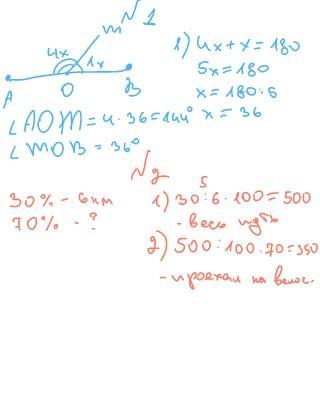 № 1
m
4x 1x
A O B
1) 4x + x = 180
5x = 180
x = 180:5
x = 36
∠AOM = 4 · 36 = 144°
∠MOB = 36°
№ 2
30% - 6 км
70% - ?
5
1) 30:6 · 100 = 500
- весь путь
2) 500:100 · 70 = 350
- проехали на велос.